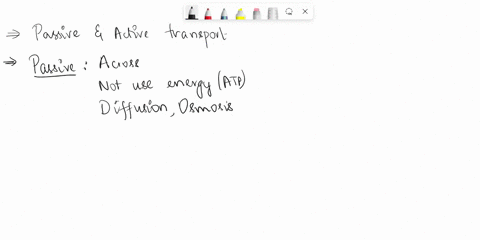 ⇒ Passive & Active transport
⇒ Passive : Across
Not use energy (ATP)
Diffusion, Osmosis